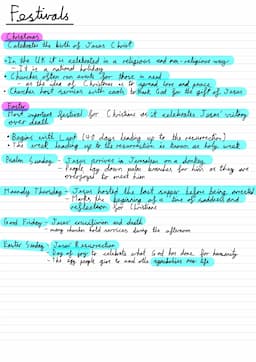 Festivals
Christmas
Celebrates the birth of Jesus Christ
• In the UK it is celebrated in a religious and non-religious way
- It is a national holiday
• Churches often run events for those in need
- as the idea of Christmas is to spread love and peace
• Churches host services with carols to thank God for the gift of Jesus
Easter
Most important festival for Christians as it celebrates Jesus' victory
over death
• Begins with Lent (40 days leading up to the resurrection)
• The week leading up to the resurrection is known as holy week
Palm Sunday - Jesus arrives in Jerusalem on a donkey
- People lay down palm branches for him as they are
overjoyed to meet him
Maundy Thursday - Jesus hosted the last supper before being arrested
- Marks the beginning of a time of sadness and
reflection for Christians
Good Friday - Jesus' crucifixion and death
- many churches hold services during the afternoon
Easter Sunday - Jesus' Resurrection
- Day of joy to celebrate what God has done for humanity
- The egg people give to each other symbolises new life